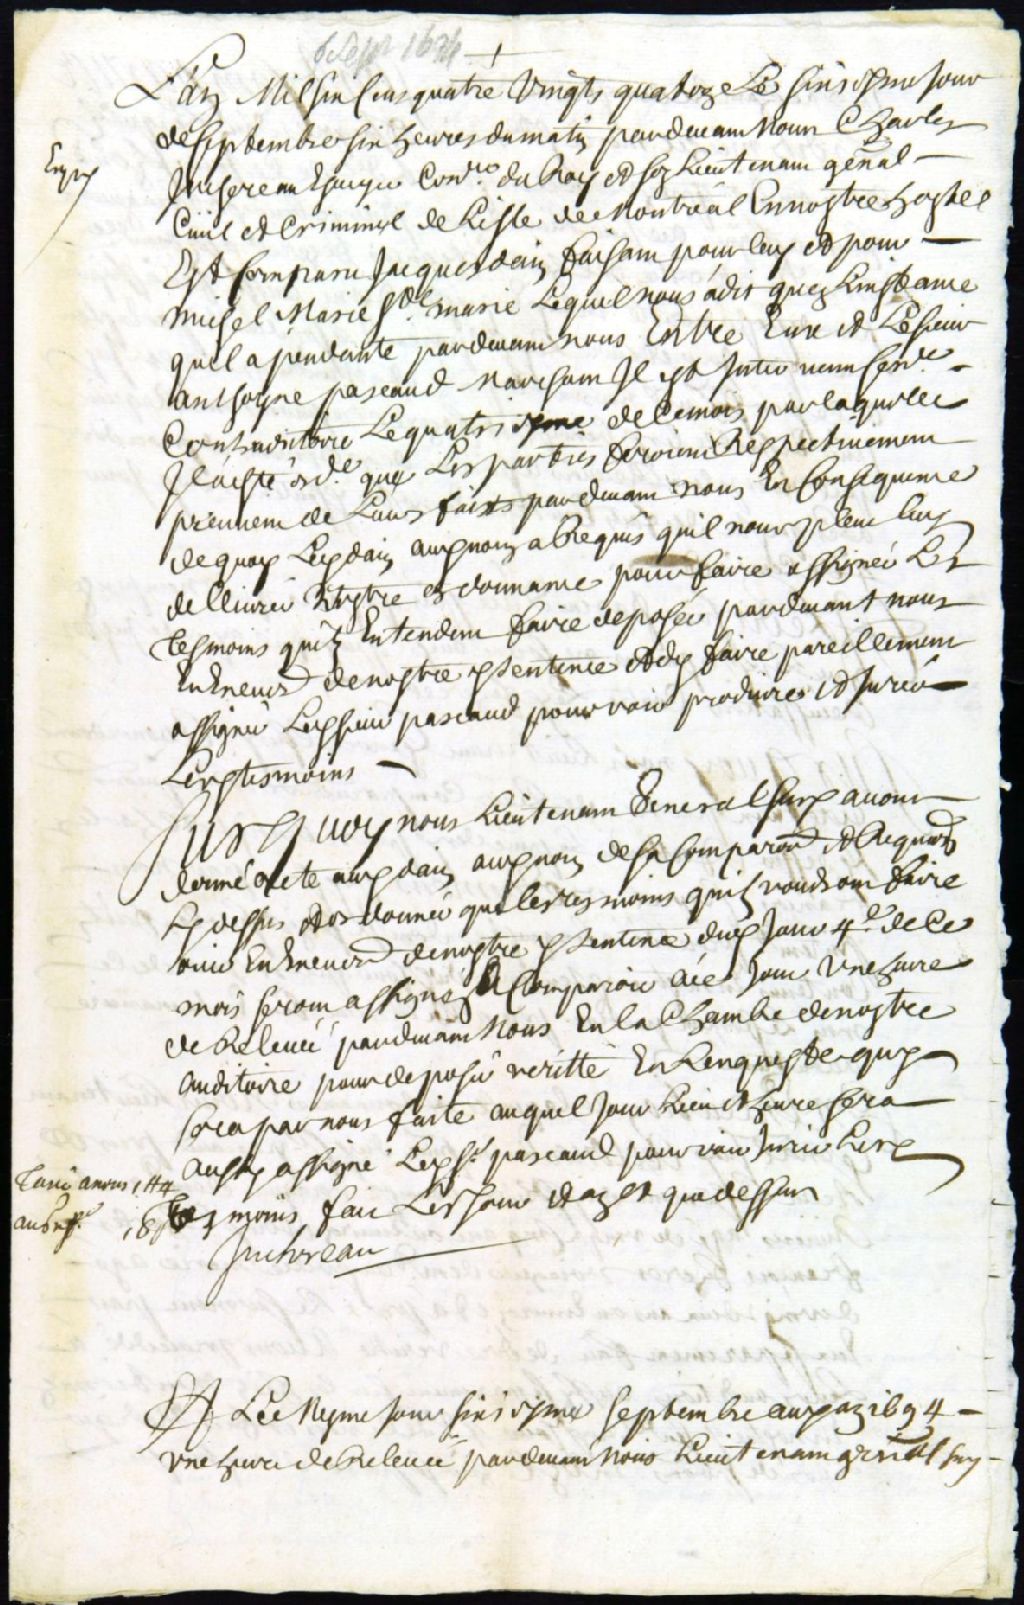 6 Sept 1694
L'an Mil six Cens quatre Vingts quatorze Le sixiesme Jour
de septembre six heures du matin pardevant Nous Charles
Juchereau Escuyer Con.er du Roy et son Lieutenant genal
Civil et Criminel de L'isle de Montreal En nostre hostel
Est Comparu Jacques dain faisant pour luy et pour
Michel Marie dt Ste marie Lequel nous a dit quen Linstance
quil a pendante pardevant nous Entre Eux et Le sieur
anthoyne pascaud marchant Il est Interuenu sen.ce
Contradictoire Le quatriesme de Ce mois par laquelle
Il a esté ord.é que Les parties feroient Respectivement
preuvent de Leurs faits pardevant nous En Consequence
de quoy Led dain aud nom a Requis quil nous pleut luy
dellivrer Nostre ordonnance pour faire assigner Les
Tesmoins quilz Entendent faire deposer pardevant nous
En Execuon de nostre d sentence et dy faire pareillement
assigner Led sieur pascaud pour voir produire et Jurer
Lesd tesmoins
Sur Quoy nous Lieutenant General susd avons
donné acte aud dain aud nom de sa Comparon et Requison
Cy dessus et ordonné que les tesmoins quilz voudront faire
ouir En Execuon de nostre d sentence dud Jour 4e de Ce
mois seront assignez A Comparoir Ce Jour Une heure
de Relevée pardevant Nous En la Chambre de nostre
auditoire pour deposer veritté En Lenqueste quy
sera par nous faite auquel Jour Lieu et heure sera
aussy assigné Led sr pascaud pour voir Jurer Lesd
Tesmoins fait Les Jour et an que dessus
Juchereau
Et Led Mesme Jour sixiesme septembre aud an 1694
une heure de Relevée pardevant Nous Lieutenant genal susd